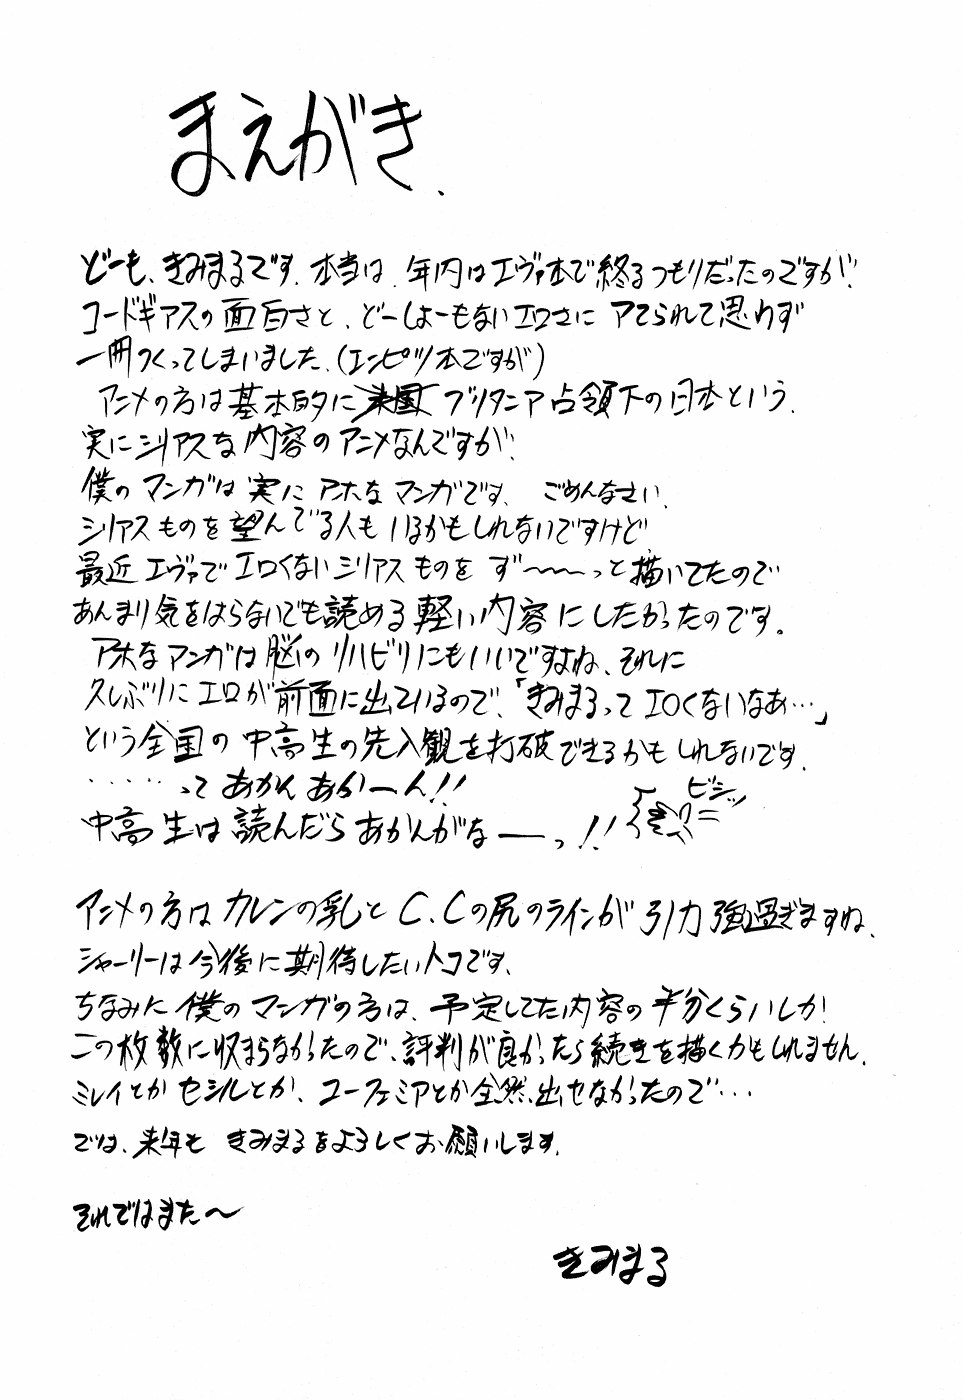 まえがき、
どーも、きみまるです。本当は、年内はエヴァ本で終るつもりだったのですが、
コードギアスの面白さと、どーしよーもないエロさにアてられて思わず
一冊つくってしまいました。(エンピツ本ですが)
アニメの方は基本的に米国ブリタニア占領下の日本という、
実にシリアスな内容のアニメなんですが、
僕のマンガは実にアホなマンガです、ごめんなさい、
シリアスものを望んでる人もいるかもしれないですけど
最近エヴァでエロくないシリアスものをず〜〜〜っと描いてたので
あんまり気をはらないでも読める軽い内容にしたかったのです。
アホなマンガは脳のリハビリにもいいですよね、それに
久しぶりにエロが前面に出ているので、「きみまるってエロくないなあ…」
という全国の中高生の先入観を打破できるかもしれないです、
・・・・・ってあかんあかーん!!
ビシッ
中高生は読んだらあかんがなーっ!!
アニメの方はカレンの乳とC.Cの尻のラインが引力強過ぎますね、
シャーリーは今後に期待したいトコです、
ちなみに僕のマンガの方は、予定してた内容の半分くらいしか
この枚数に収まらなかったので、評判が良かったら続きを描くかもしれません、
ミレイとかセシルとか、ユーフェミアとか全然出せなかったので…
では、来年もきみまるをよろしくお願いします、
それではまた〜
きみまる